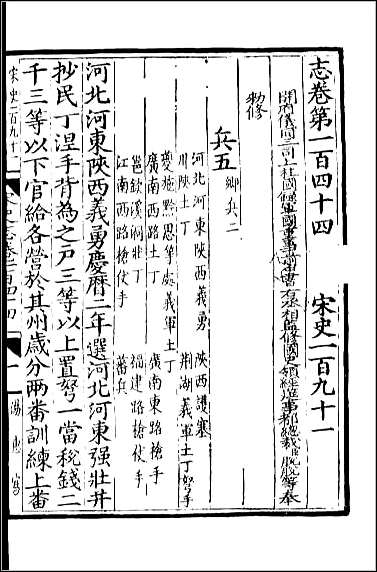 志卷第一百四十四 宋史一百九十一
開府儀同三司上柱國錄軍國重事前中書右丞相監修國史領經筵事都總裁脫脫等奉
勅修
兵五 鄉兵二
河北河東陝西義勇 陝西護塞
川陝土丁 荊湖義軍土丁弩手
夔施黔思等處義軍土丁
廣南西路土丁 廣南東路槍手
邕欽溪洞壯丁 福建路槍仗手
江南西路槍仗手 蕃兵
河北河東陝西義勇慶曆二年選河北河東强壯幷
抄民丁涅手背為之户三等以上置弩一當稅錢二
千三等以下官給各營於其州歲分兩番訓練上番
宋史一百九十一